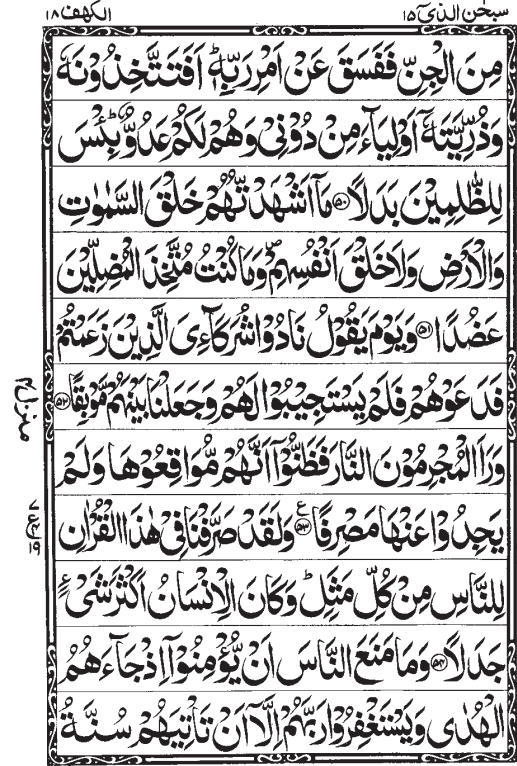 سبحٰن الذیٓ ۱۵
الکھف ۱۸
مِنَ الْجِنِّ فَفَسَقَ عَنْ اَمْرِ رَبِّهٖ ؕ اَفَتَتَّخِذُوْنَهٗ
وَذُرِّيَّتَهٗۤ اَوْلِيَآءَ مِنْ دُوْنِيْ وَهُمْ لَكُمْ عَدُوٌّ ؕ بِئْسَ
لِلظّٰلِمِيْنَ بَدَلًا ﴿۵۰﴾ مَاۤ اَشْهَدْتُّهُمْ خَلْقَ السَّمٰوٰتِ
وَالْاَرْضِ وَلَا خَلْقَ اَنْفُسِهِمْ ۪ وَمَا كُنْتُ مُتَّخِذَ الْمُضِلِّيْنَ
عَضُدًا ﴿۵۱﴾ وَيَوْمَ يَقُوْلُ نَادُوْا شُرَكَآءِيَ الَّذِيْنَ زَعَمْتُمْ
فَدَعَوْهُمْ فَلَمْ يَسْتَجِيْبُوْا لَهُمْ وَجَعَلْنَا بَيْنَهُمْ مَّوْبِقًا ﴿۵۲﴾
وَرَاَ الْمُجْرِمُوْنَ النَّارَ فَظَنُّوْۤا اَنَّهُمْ مُّوَاقِعُوْهَا وَلَمْ
يَجِدُوْا عَنْهَا مَصْرِفًا ﴿۵۳﴾ ع وَلَقَدْ صَرَّفْنَا فِيْ هٰذَا الْقُرْاٰنِ
لِلنَّاسِ مِنْ كُلِّ مَثَلٍ ؕ وَكَانَ الْاِنْسَانُ اَكْثَرَ شَيْءٍ
جَدَلًا ﴿۵۴﴾ وَمَا مَنَعَ النَّاسَ اَنْ يُّؤْمِنُوْۤا اِذْ جَآءَهُمُ
الْهُدٰى وَيَسْتَغْفِرُوْا رَبَّهُمْ اِلَّاۤ اَنْ تَاْتِيَهُمْ سُنَّةُ
منزل ۴